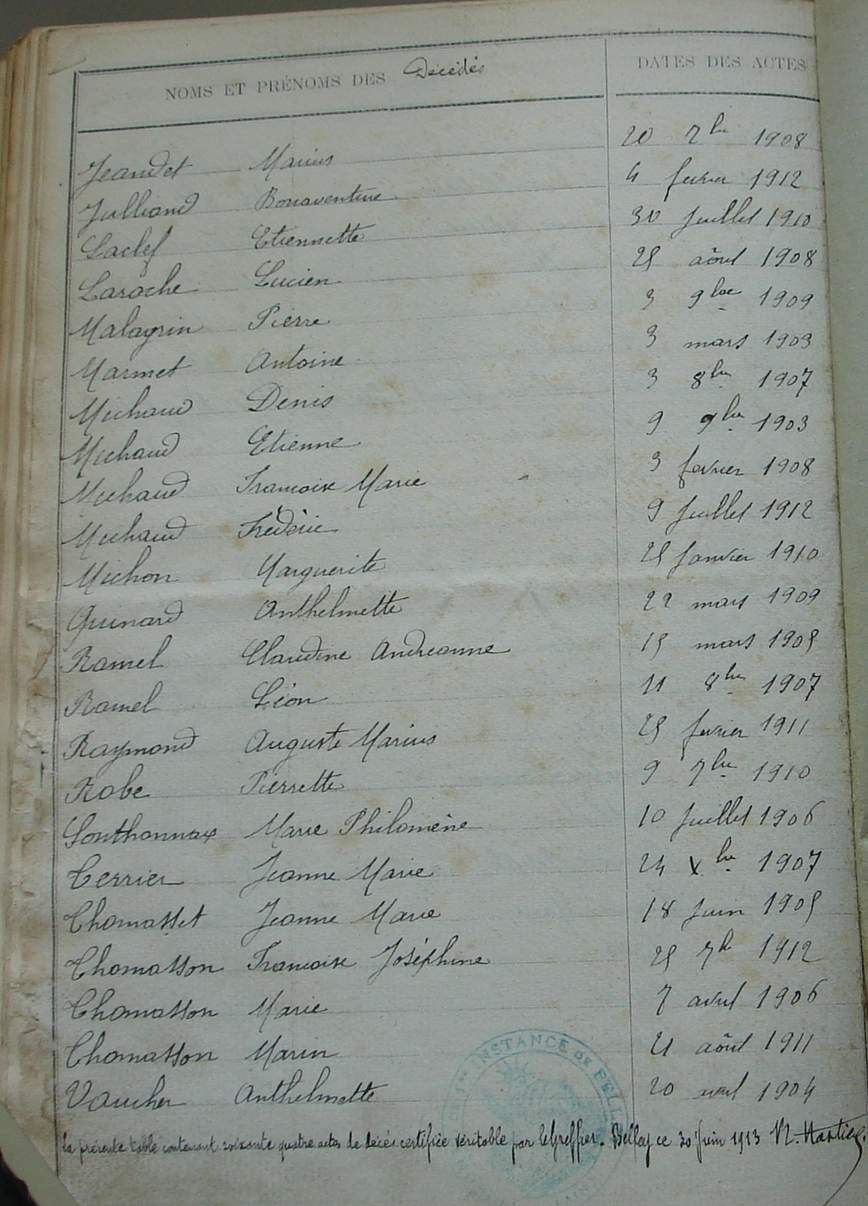 NOMS ET PRÉNOMS DES Décédés DATES DES ACTES
Jeandet Marius 20 7bre 1908
Julliand Bonaventure 4 février 1912
Laclef Etiennette 30 Juillet 1910
Laroche Lucien 25 août 1908
Malagrin Pierre 3 9bre 1909
Marmet Antoine 3 mars 1903
Michaud Denis 3 8bre 1907
Michaud Etienne 9 9bre 1903
Michaud Francoise Marie 3 février 1908
Michaud Frédéric 9 Juillet 1912
Michon Marguerite 25 Janvier 1910
Quinard Anthelmette 22 mars 1909
Ramel Claudine Andréanne 15 mars 1905
Ramel Léon 11 8bre 1907
Raymond Auguste Marius 25 février 1911
Robe Pierrette 9 7bre 1910
Sonthonnax Marie Philomène 10 Juillet 1906
Terrier Jeanne Marie 24 Xbre 1907
Thomasset Jeanne Marie 18 Juin 1905
Thomasson Francoise Joséphine 25 7b 1912
Thomasson Marie 7 avril 1906
Thomasson Marin 21 août 1911
Vaucher Anthelmette 20 avril 1904
La présente table contenant soixante quatre actes de décès certifiée véritable par le Greffier. Belley ce 30 Juin 1913
INSTANCE DE BELL